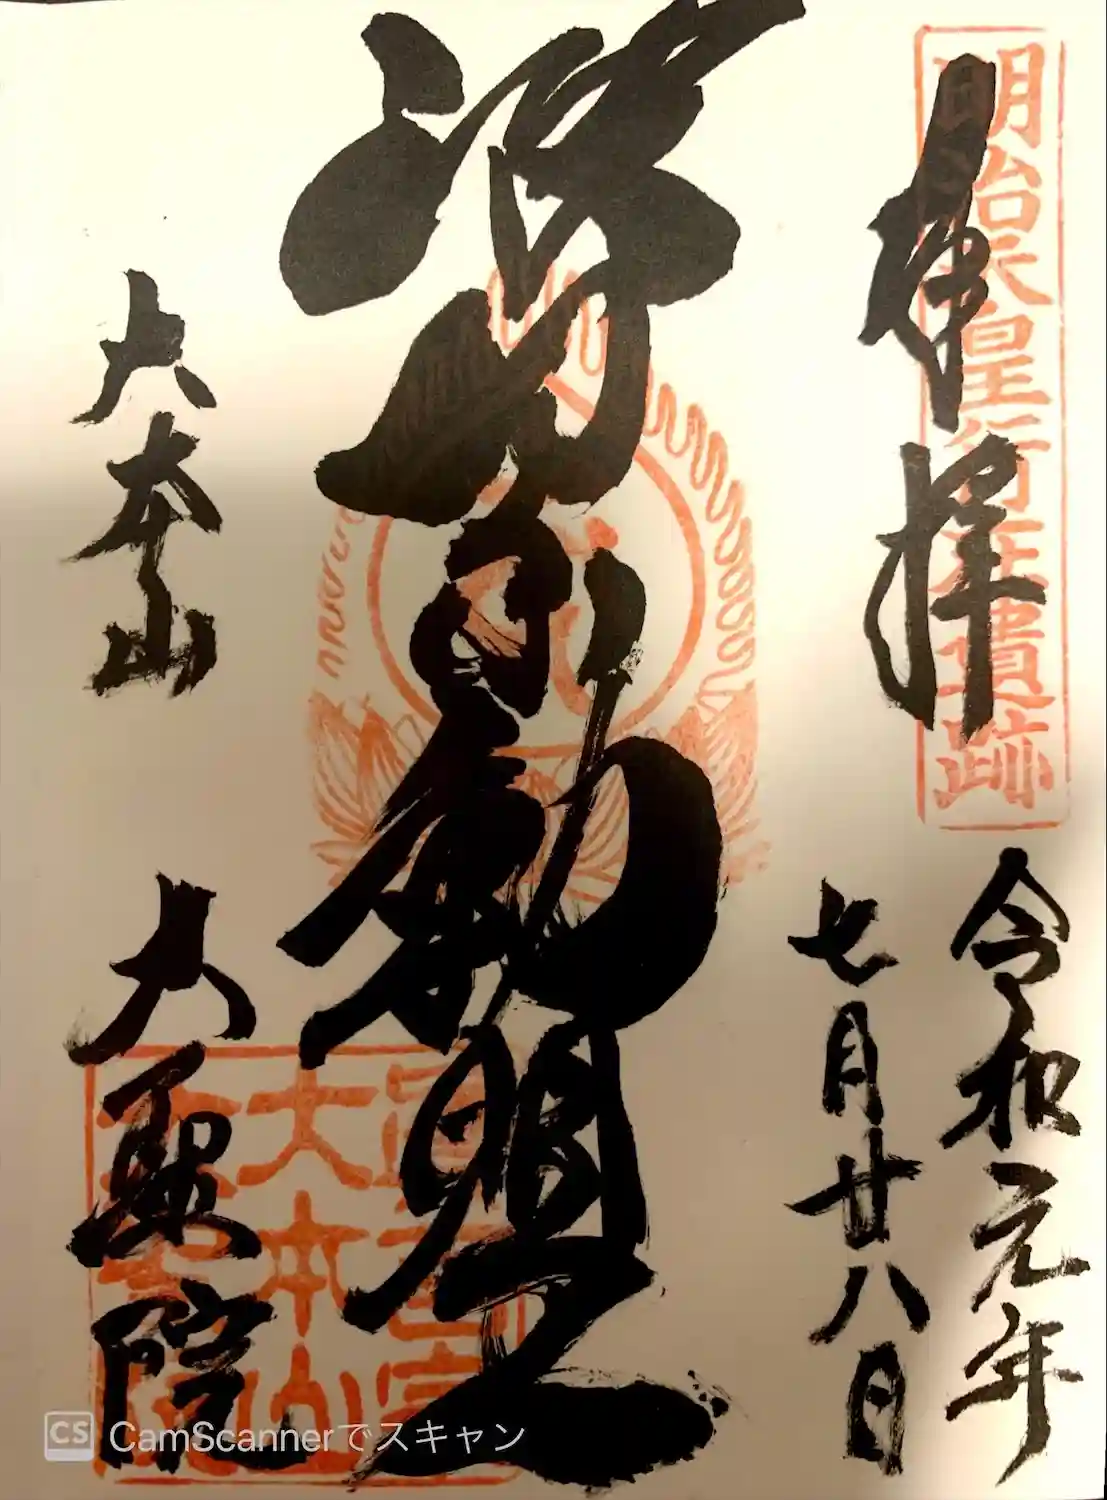 明治天皇行在遺跡
奉拝
令和元年
七月廿八日
波切不動明王
大本山
大聖院
大本山
CSCamScannerでスキャン